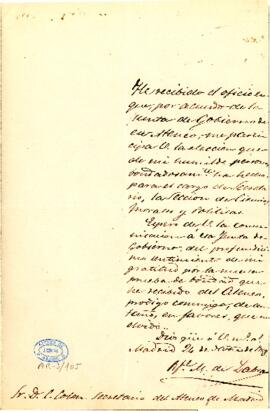 He recibido el oficio en
que, por acuerdo de la
Junta de Gobierno de
ese Ateneo, me parti-
cipa V. la eleccion que
de mi humilde persona
ha hecho
para el cargo de
la Seccion de Ciencias
Morales y Politicas.
Espero de V. la comu-
nicacion a esa Junta de
Gobierno, del profundisi-
mo sentimiento de mi
gratitud por la nueva
prueba de bondad que
he recibido del Ateneo,
prodigo conmigo, de
en favores, que no
olvido.
Dios gue á V. m. a.
Madrid 24 de
R. M. de Labra
AR-3/105
Sr. D. Secretario del Ateneo de Madrid